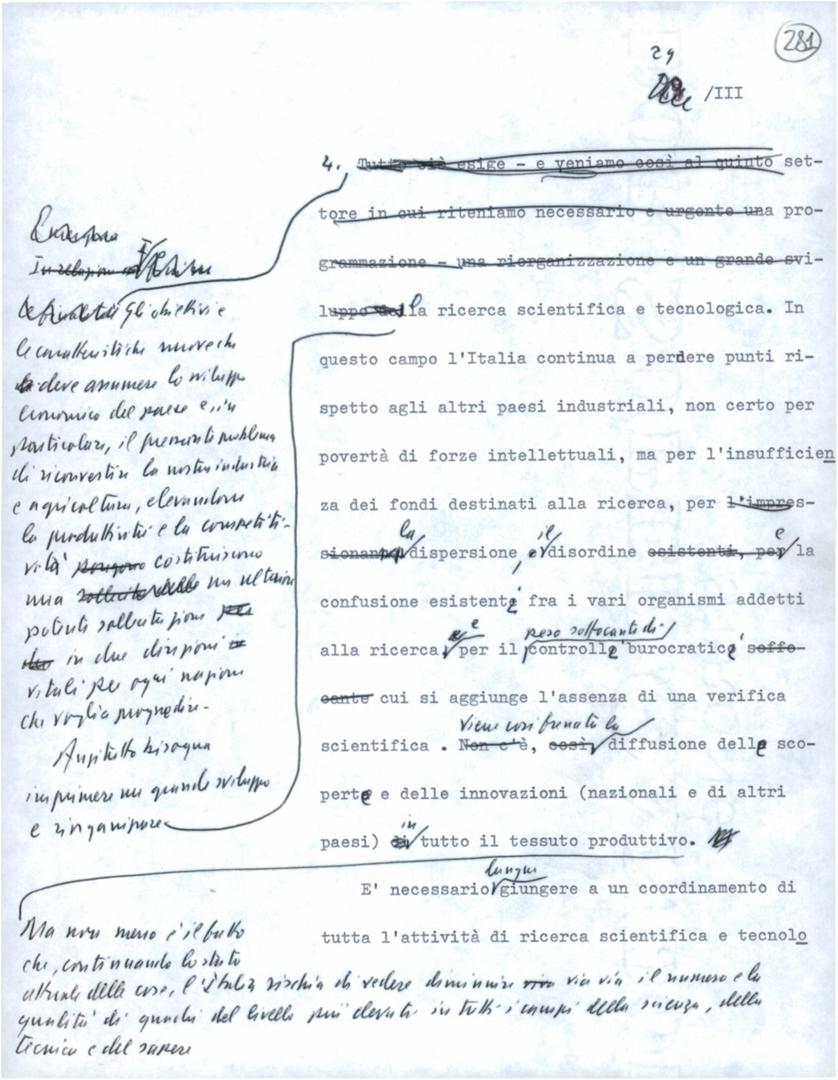 281
29
/III
4. Tutto ciò esige - e veniamo così al quinto set-
tore in cui riteniamo necessario e urgente una pro-
grammazione - una riorganizzazione e un grande svi-
luppo della la ricerca scientifica e tecnologica. In
questo campo l'Italia continua a perdere punti ri-
spetto agli altri paesi industriali, non certo per
povertà di forze intellettuali, ma per l'insufficien
za dei fondi destinati alla ricerca, per l'impres-
la il e
sionante dispersione, e disordine esistenti, per la
confusione esistente fra i vari organismi addetti
e peso soffocante di
alla ricerca per il controllo burocratico soffo-
cante cui si aggiunge l'assenza di una verifica
Viene così frenata la
scientifica . Non c'è, così, diffusione delle sco-
perte e delle innovazioni (nazionali e di altri
in
paesi) di tutto il tessuto produttivo.
lungi
E' necessario giungere a un coordinamento di
tutta l'attività di ricerca scientifica e tecnolo
In relazione
Gli obiettivi e
le caratteristiche nuove che
deve assumere lo sviluppo
economico del paese e, in
particolare, il pressante problema
di riconvertire la nostra industria
e agricoltura, elevandone
la produttività e la competiti-
vità pongono costituiscono
una un ulteriore
potente sollecitazione
in due direzioni
vitali per ogni nazione
che voglia progredire.
Anzitutto bisogna
imprimere un grande sviluppo
e riorganizzare
Ma non meno è il fatto
che, continuando lo stato
attuale delle cose, l'Italia rischia di vedere diminuire via via il numero e la
qualità di quadri del livello più elevato in tutti i campi della scienza, della
tecnica e del sapere